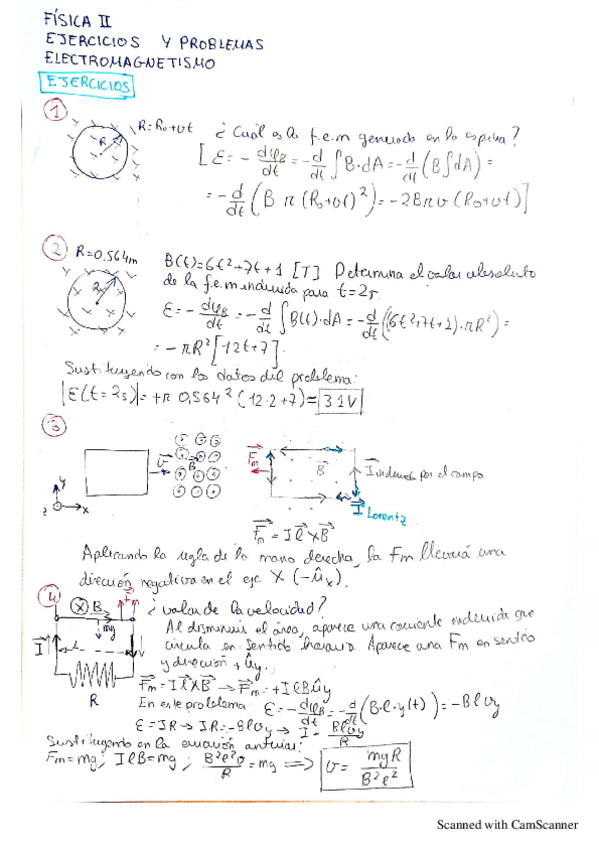 FÍSICA II
EJERCICIOS Y PROBLEMAS
ELECTROMAGNETISMO
EJERCICIOS
1
R=R₀+vt ¿Cuál es la f.e.m generada en la espira?
R
[ε = - dφB/dt = -d/dt ∫B·dA = -d/dt (B∫dA) =
= -d/dt (B π (R₀+vt)²) = -2Bπv (R₀+vt)]
2 R=0.564m B(t)=6t²+7t+1 [T] Determina el valor absoluto
de la f.e.m inducida para t=2s.
R
ε = - dφB/dt = -d/dt ∫B(t)·dA = -d/dt ((6t²+7t+1)·πR²) =
= -πR² [12t+7].
Sustituyendo con los datos del problema:
|ε(t=2s)| = +π 0,564² (12·2+7) = 31V
3
v B Fm B I inducida por el campo
y
z x
I Lorentz
Fm = I l × B
Aplicando la regla de la mano derecha, la Fm llevará una
dirección negativa en el eje X (-ûx).
4 B mg ¿valor de la velocidad?
Al disminuir el área, aparece una corriente inducida que
circula en sentido horario. Aparece una Fm en sentido
y dirección +ûy.
I L
R
Fm = I l × B → Fm = +I l B ûy
En este problema ε = -dφB/dt = -d/dt (B·l·y(t)) = -Blvy
ε = IR → IR = -Blvy → I = Blvy/R
Sustituyendo en la ecuación anterior:
Fm = mg; I l B = mg; B²l²v/R = mg ⟹ v = mgR/B²l²
Scanned with CamScanner